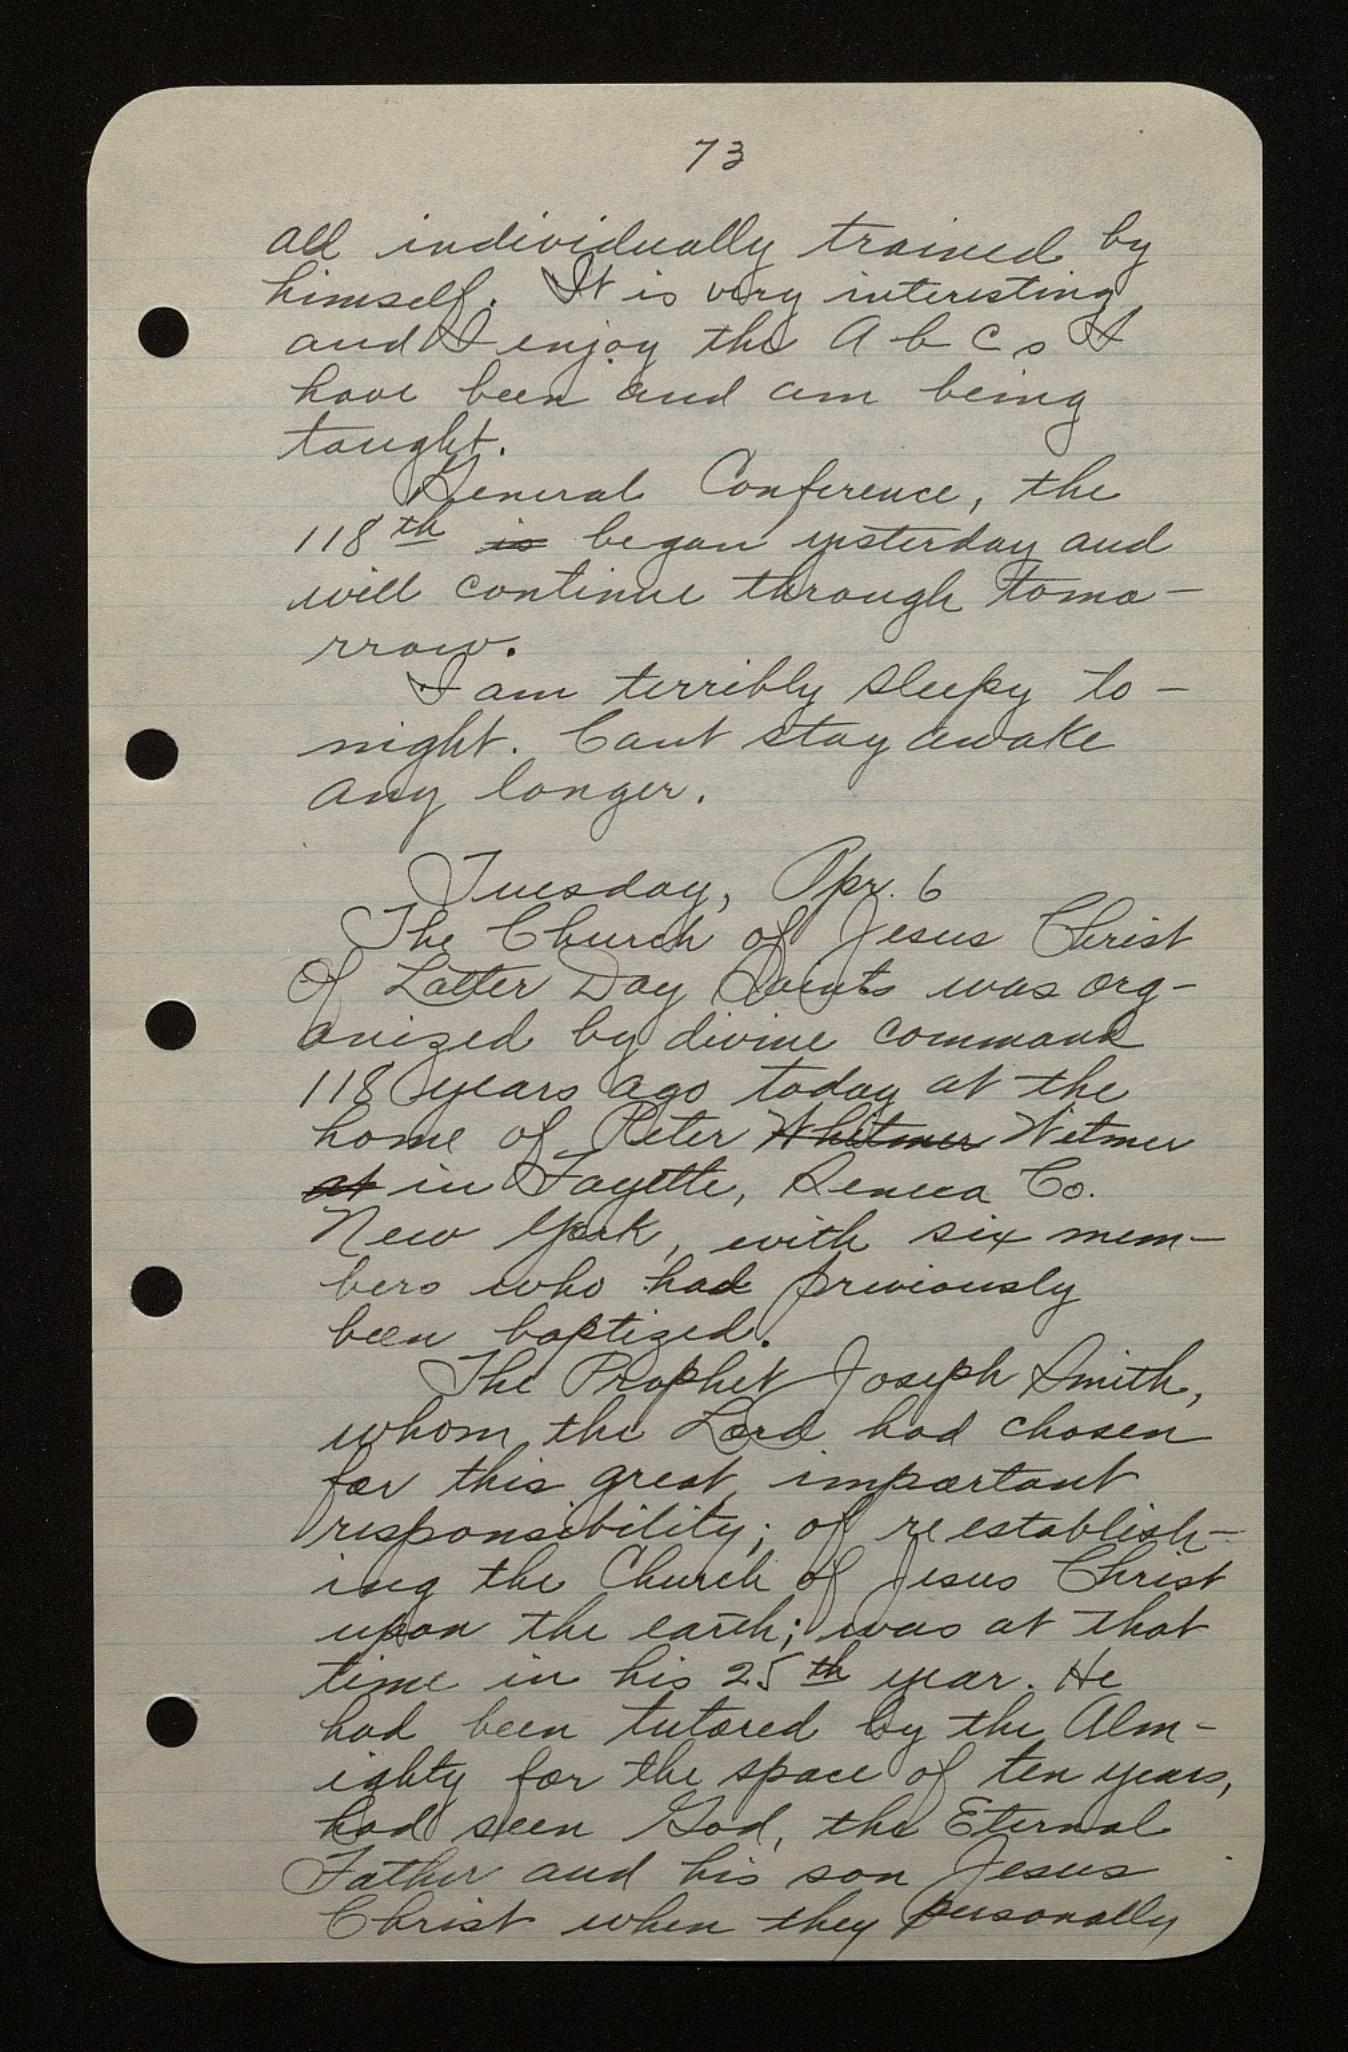 73
all individually trained by
himself. It is very interesting
and I enjoy the A b C s I
have been and am being
taught.
General Conference, the
118th is began yesterday and
will continue through tomo-
rrow.
I am terribly sleepy to-
night. Cant stay awake
any longer.
Tuesday, Apr. 6
The Church of Jesus Christ
Of Latter Day Saints was org-
anized by divine command
118 years ago today at the
home of Peter Whitmer Witmer
at in Fayette, Seneca Co.
New York, with six mem-
bers who had previously
been baptized.
The Prophet Joseph Smith,
whom the Lord had chosen
for this great important
responsibility; of reestablish-
ing the Church of Jesus Christ
upon the earth; was at that
time in his 25th year. He
had been tutored by the Alm-
ighty for the space of ten years,
had seen God, the Eternal
Father and his son Jesus
Christ when they personally